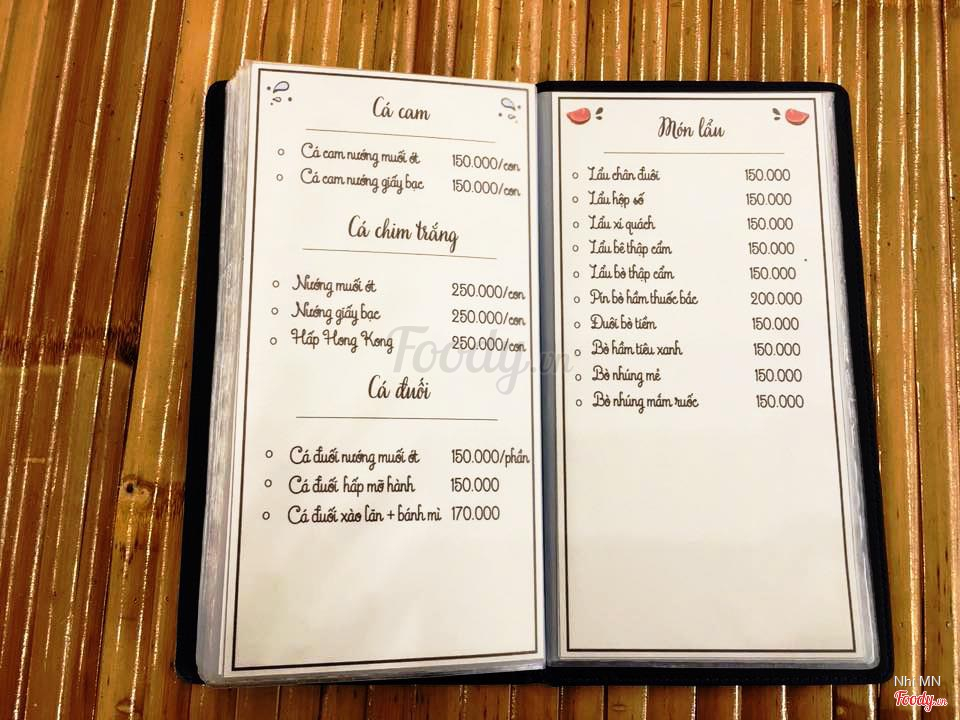 Cá cam
Cá cam nướng muối ớt 150.000/con
Cá cam nướng giấy bạc 150.000/con
Cá chim trắng
Nướng muối ớt 250.000/con
Nướng giấy bạc 250.000/con
Hấp Hong Kong 250.000/con
Cá đuối
Cá đuối nướng muối ớt 150.000/phần
Cá đuối hấp mỡ hành 150.000
Cá đuối xào lăn + bánh mì 170.000
Món lẩu
Lẩu chân đuôi 150.000
Lẩu hộp số 150.000
Lẩu xí quách 150.000
Lẩu bê thập cẩm 150.000
Lẩu bò thập cẩm 150.000
Pín bò hầm thuốc bắc 200.000
Đuôi bò tiềm 150.000
Bò hầm tiêu xanh 150.000
Bò nhúng mẻ 150.000
Bò nhúng mắm ruốc 150.000
Foody.vn
Nhi MN
Foody.vn